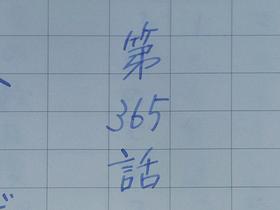 第
365
話